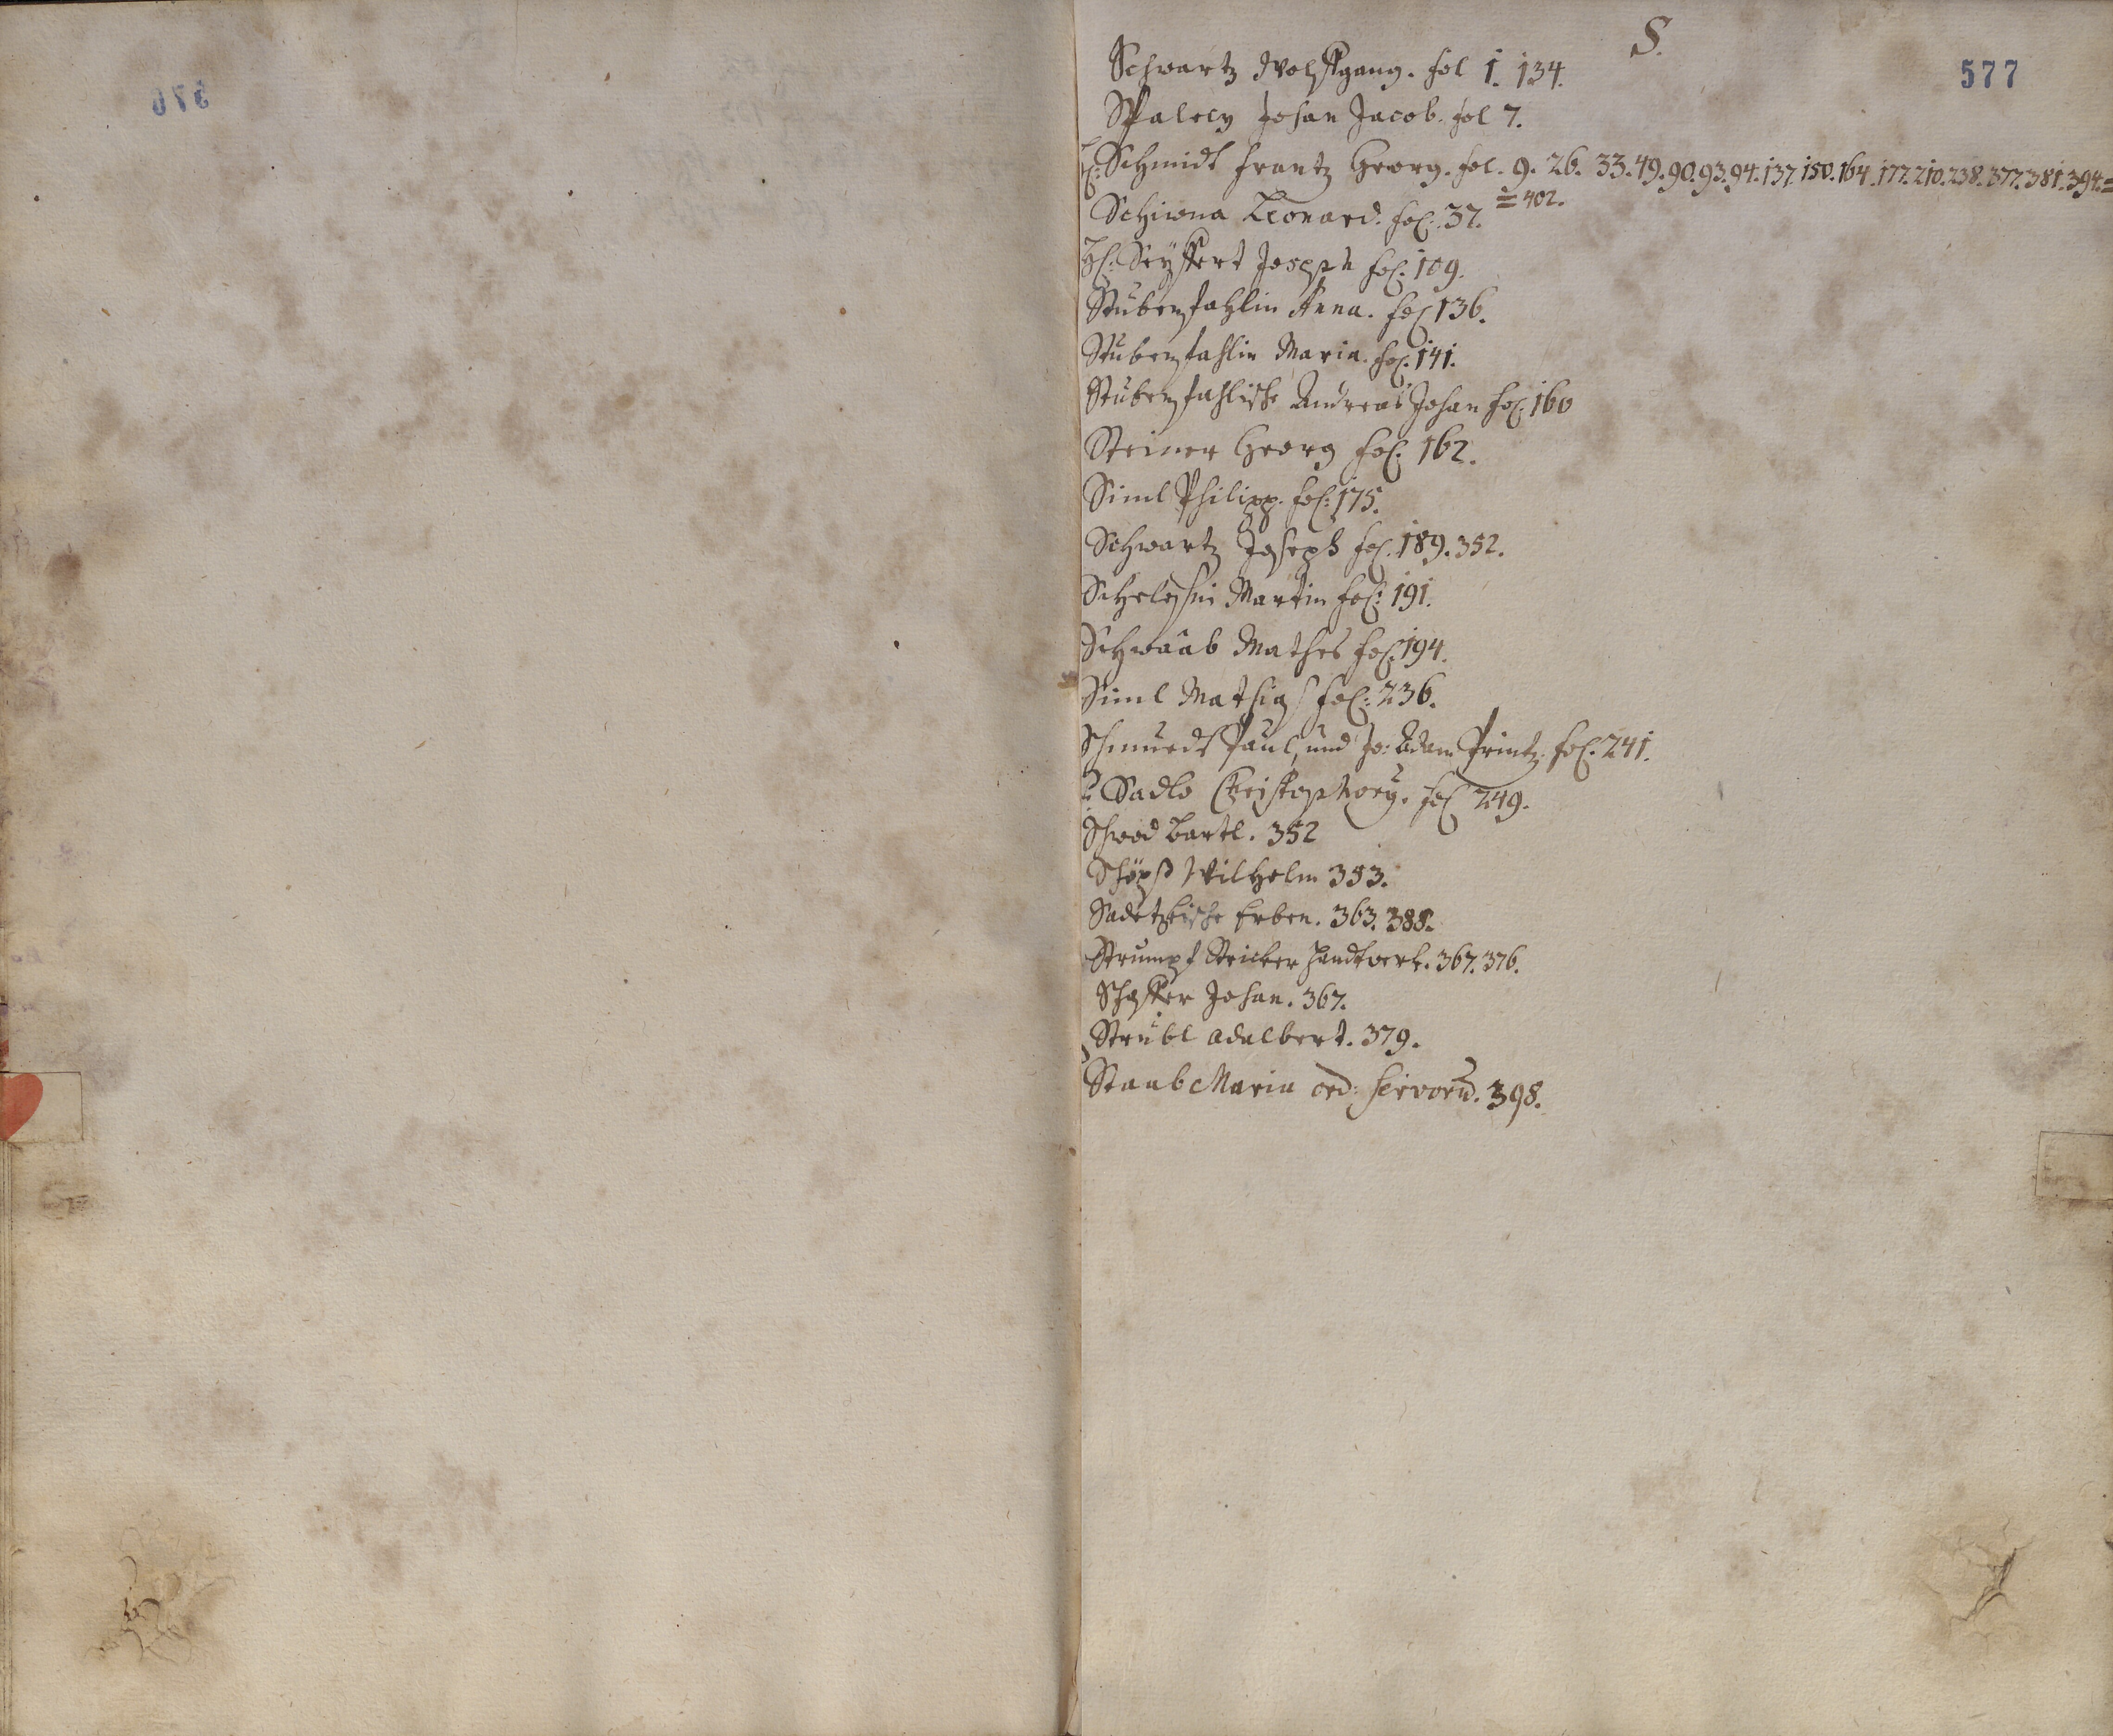 S.
577
Schwartz Wolffgang. fol 1. 134.
Johan Jacob. fol 7.
Schmidt Frantz Georg. fol. 9. 26. 33. 49. 90. 93. 94. 137. 150. 164. 177. 210. 238. 377. 381. 394. =
= 402.
Schiwna Leonard. fol: 37.
H: Seÿffert Joseph fol. 109.
Stubenfahlin Anna. fol 136.
Stubenfahlin Maria. fol. 141.
Stubenfahlische Andreas Johan fol. 160
Steiner Georg fol. 162.
Siml Philipp. fol: 175.
Schwartz Joseph fol. 189. 352.
Martin fol: 191.
Schwaab Mathes fol. 194.
Siml Mathias fol: 236.
Paul, und Jo: Adam Printz. fol. 241.
Sadlo Christophorg. fol 249.
Bartl. 352
Schöpß Wilhelm 353.
Sadetzkische Erben. 363. 388.
Strumpf Stricker Handtwerk. 367. 376.
Schaffer Johan. 367.
Strubl Adalbert. 379.
Staab Maria ord: Servorū. 398.